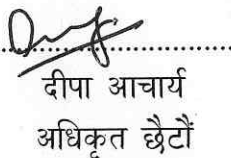 दीपा आचार्य
अधिकृत छैटौं